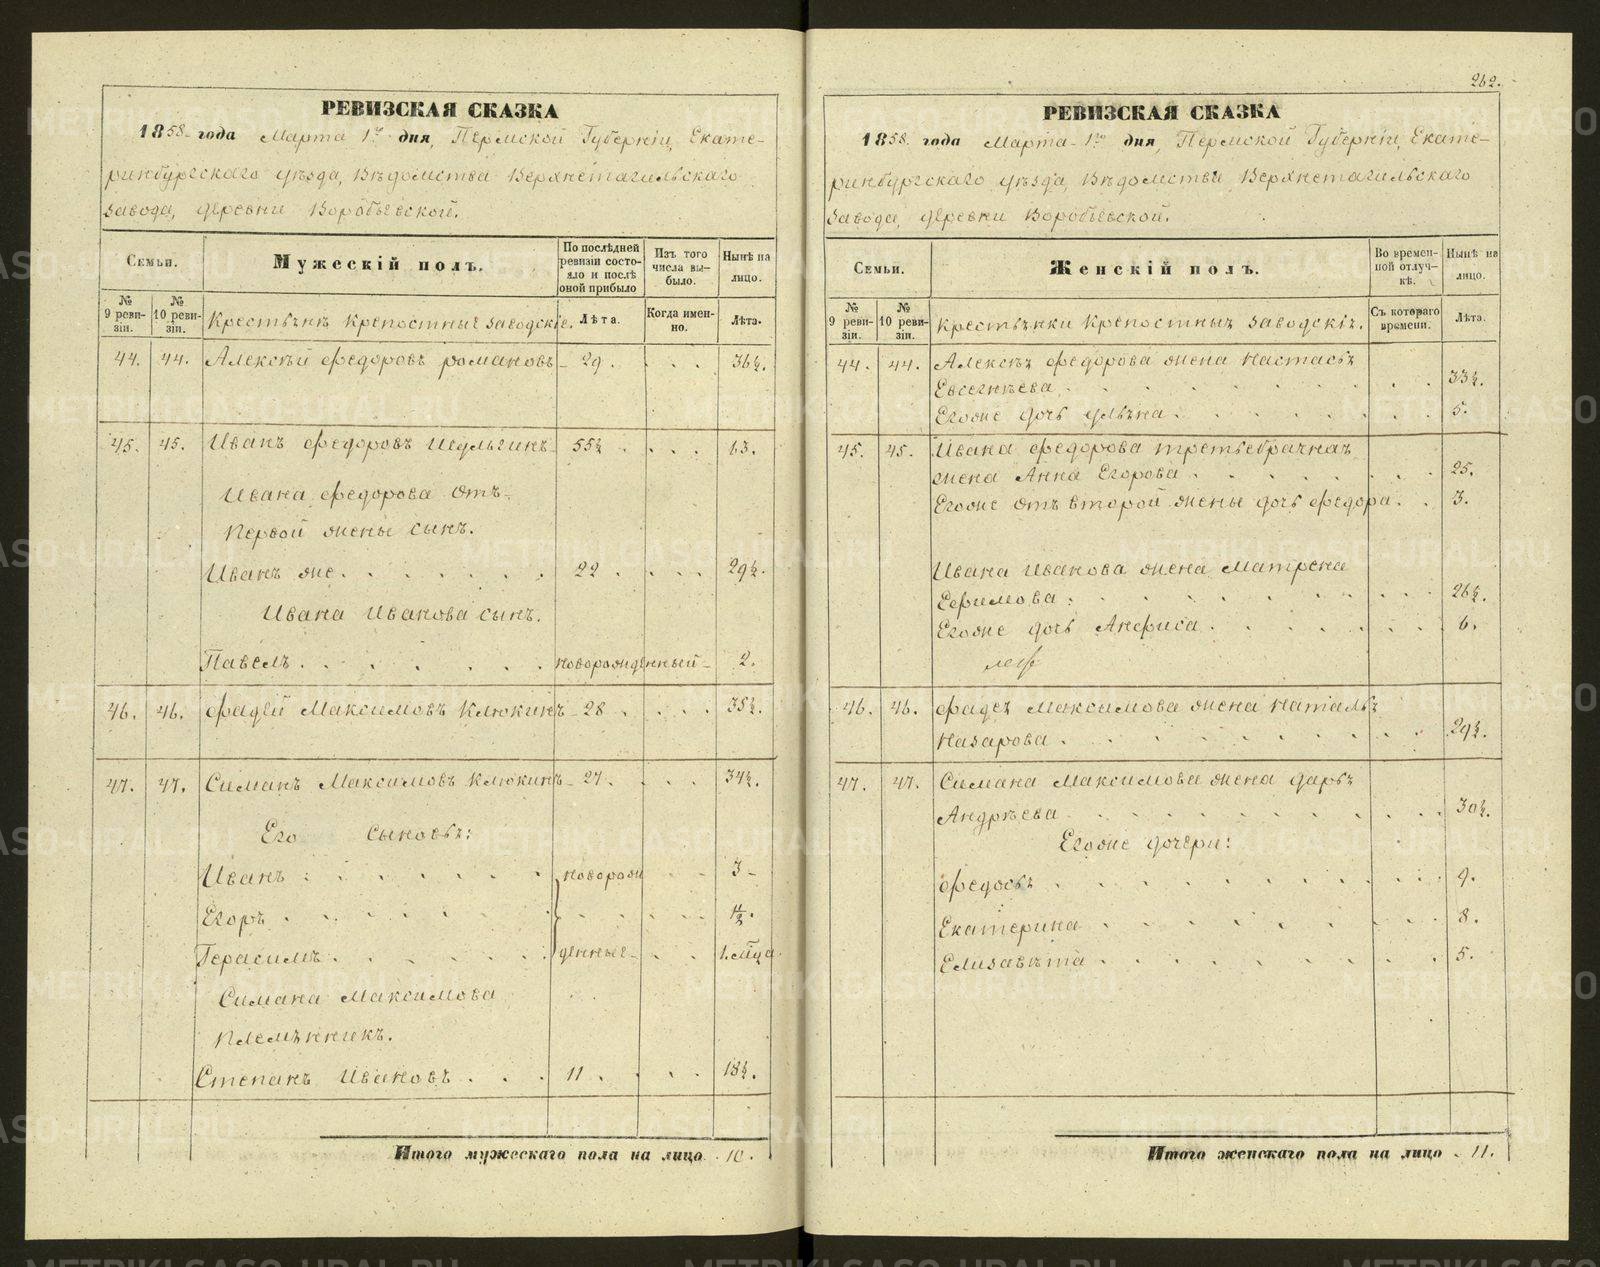 РЕВИЗСКАЯ СКАЗКА
1858 года Марта 1го дня, Пермской Губерніи, Екате-
ринбургскаго уѣзда, Вѣдомства Верхнетагильскаго
Завода, деревни Воробьевской.
Семьи.
Мужескій полъ.
По послѣдней ревизіи состо-яло и послѣ оной прибыло
Изъ того числа вы-было.
Нынѣ на лицо.
№ 9 реви-зіи.
№ 10 реви-зіи.
Крестьяне крепостные заводскіе.
Лѣта.
Когда имен-но.
Лѣта.
44. 44. Алексѣй Федоровъ Романовъ 29. 36½.
45. 45. Иванъ Федоровъ Шульгинъ 55½ 63.
Ивана Федорова отъ
первой жены сынъ.
Иванъ же 22 29½.
Ивана Иванова сынъ.
Павелъ новорожденный 2.
46. 46. Фадей Максимовъ Клюкинъ 28 35½.
47. 47. Симанъ Максимовъ Клюкинъ 27. 34½.
Его сыновья:
Иванъ новорож 3
Егоръ ½.
Герасимъ денные 1.мѣца
Симана Максимова
племянникъ.
Степанъ Ивановъ 11 18½.
Итого мужескаго пола на лицо 10.
262.
РЕВИЗСКАЯ СКАЗКА
1858 года Марта 1го дня, Пермской Губерніи, Екате-
ринбургскаго уѣзда, Вѣдомства Верхнетагильскаго
Завода, деревни Воробьевской.
Семьи.
Женскій полъ.
Во времен-ной отлуч-кѣ.
Нынѣ на лицо.
№ 9 реви-зіи.
№ 10 реви-зіи.
Крестьянки крепостныя заводскія.
Съ котораго времени.
Лѣта.
44. 44. Алексѣя Федорова жена Настасья
Евсегнѣева 33½.
Егоже дочь Ульяна 5.
45. 45. Ивана Федорова третьебрачная
жена Анна Егорова 25.
Егоже отъ второй жены дочь Федора 3.
Ивана Иванова жена Матрена
Ефимова 26½.
Егоже дочь Анфиса 6.
46. 46. Фадея Максимова жена Наталья
Назарова 29½.
47. 47. Симана Максимова жена Дарья
Андрѣева 30½.
Егоже дочери:
Федосья 9.
Екатерина 8.
Елизавѣта 5.
Итого женскаго пола на лицо 11.
METRIKI.GASO-URAL.RU